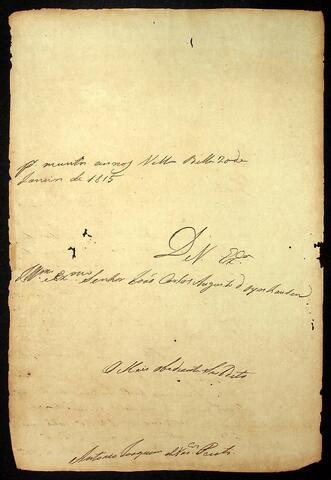 p.r muitos annos Villa Bella 20 de
Janeiro de 1815
De V. Ex.cia
Ill.mo e Ex.mo Senhor João Carlos Augusto d'Oyenhausen
O Mais obediente Subdito
Antonio Joaquim